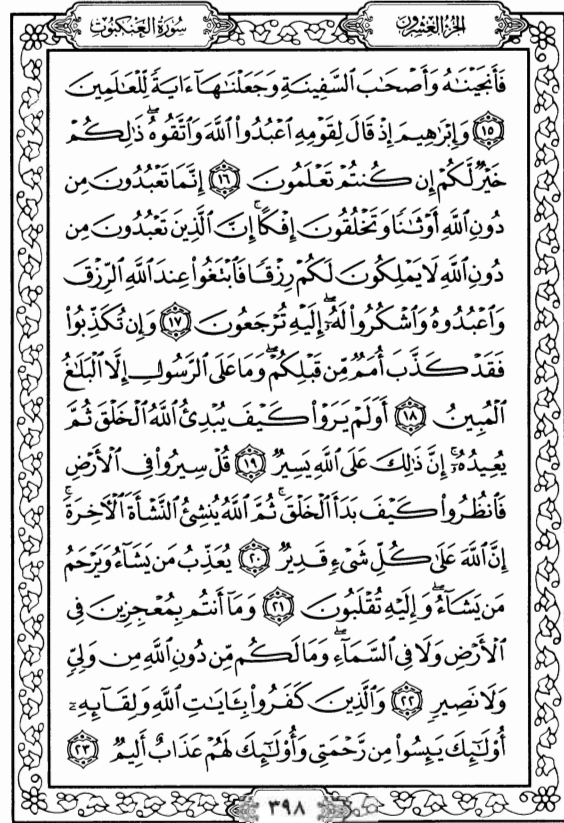 سُورَةُ العَنكَبُوتِ
الجُزْءُ العِشْرُونَ
فَأَنجَيْنَٰهُ وَأَصْحَٰبَ ٱلسَّفِينَةِ وَجَعَلْنَٰهَآ ءَايَةً لِّلْعَٰلَمِينَ
١٥ وَإِبْرَٰهِيمَ إِذْ قَالَ لِقَوْمِهِ ٱعْبُدُوا۟ ٱللَّهَ وَٱتَّقُوهُ ۖ ذَٰلِكُمْ
خَيْرٌ لَّكُمْ إِن كُنتُمْ تَعْلَمُونَ ١٦ إِنَّمَا تَعْبُدُونَ مِن
دُونِ ٱللَّهِ أَوْثَٰنًا وَتَخْلُقُونَ إِفْكًا ۚ إِنَّ ٱلَّذِينَ تَعْبُدُونَ مِن
دُونِ ٱللَّهِ لَا يَمْلِكُونَ لَكُمْ رِزْقًا فَٱبْتَغُوا۟ عِندَ ٱللَّهِ ٱلرِّزْقَ
وَٱعْبُدُوهُ وَٱشْكُرُوا۟ لَهُۥٓ ۖ إِلَيْهِ تُرْجَعُونَ ١٧ وَإِن تُكَذِّبُوا۟
فَقَدْ كَذَّبَ أُمَمٌ مِّن قَبْلِكُمْ ۖ وَمَا عَلَى ٱلرَّسُولِ إِلَّا ٱلْبَلَٰغُ
ٱلْمُبِينُ ١٨ أَوَلَمْ يَرَوْا۟ كَيْفَ يُبْدِئُ ٱللَّهُ ٱلْخَلْقَ ثُمَّ
يُعِيدُهُۥٓ ۚ إِنَّ ذَٰلِكَ عَلَى ٱللَّهِ يَسِيرٌ ١٩ قُلْ سِيرُوا۟ فِى ٱلْأَرْضِ
فَٱنظُرُوا۟ كَيْفَ بَدَأَ ٱلْخَلْقَ ۚ ثُمَّ ٱللَّهُ يُنشِئُ ٱلنَّشْأَةَ ٱلْءَاخِرَةَ ۚ
إِنَّ ٱللَّهَ عَلَىٰ كُلِّ شَىْءٍ قَدِيرٌ ٢٠ يُعَذِّبُ مَن يَشَآءُ وَيَرْحَمُ
مَن يَشَآءُ ۖ وَإِلَيْهِ تُقْلَبُونَ ٢١ وَمَآ أَنتُم بِمُعْجِزِينَ فِى
ٱلْأَرْضِ وَلَا فِى ٱلسَّمَآءِ ۖ وَمَا لَكُم مِّن دُونِ ٱللَّهِ مِن وَلِىٍّ
وَلَا نَصِيرٍ ٢٢ وَٱلَّذِينَ كَفَرُوا۟ بِـَٔايَٰتِ ٱللَّهِ وَلِقَآئِهِۦٓ
أُو۟لَٰٓئِكَ يَئِسُوا۟ مِن رَّحْمَتِى وَأُو۟لَٰٓئِكَ لَهُمْ عَذَابٌ أَلِيمٌ ٢٣
٣٩٨